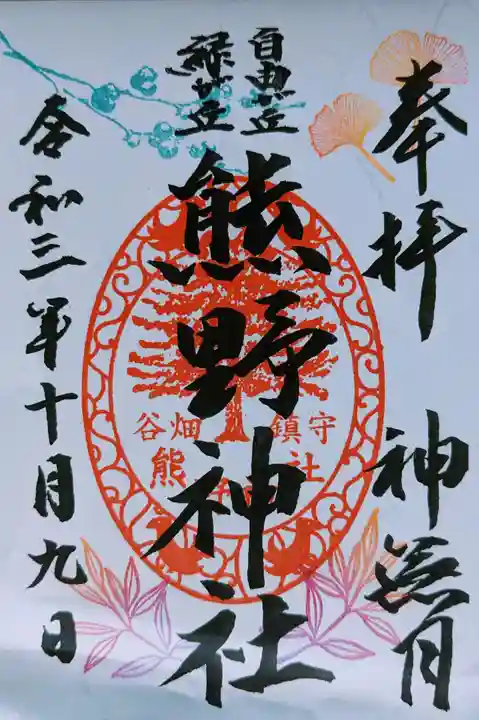 奉拝 神無月
自由が丘
緑が丘
熊野神社
谷畑 鎮守
熊 社
令和三年十月九日